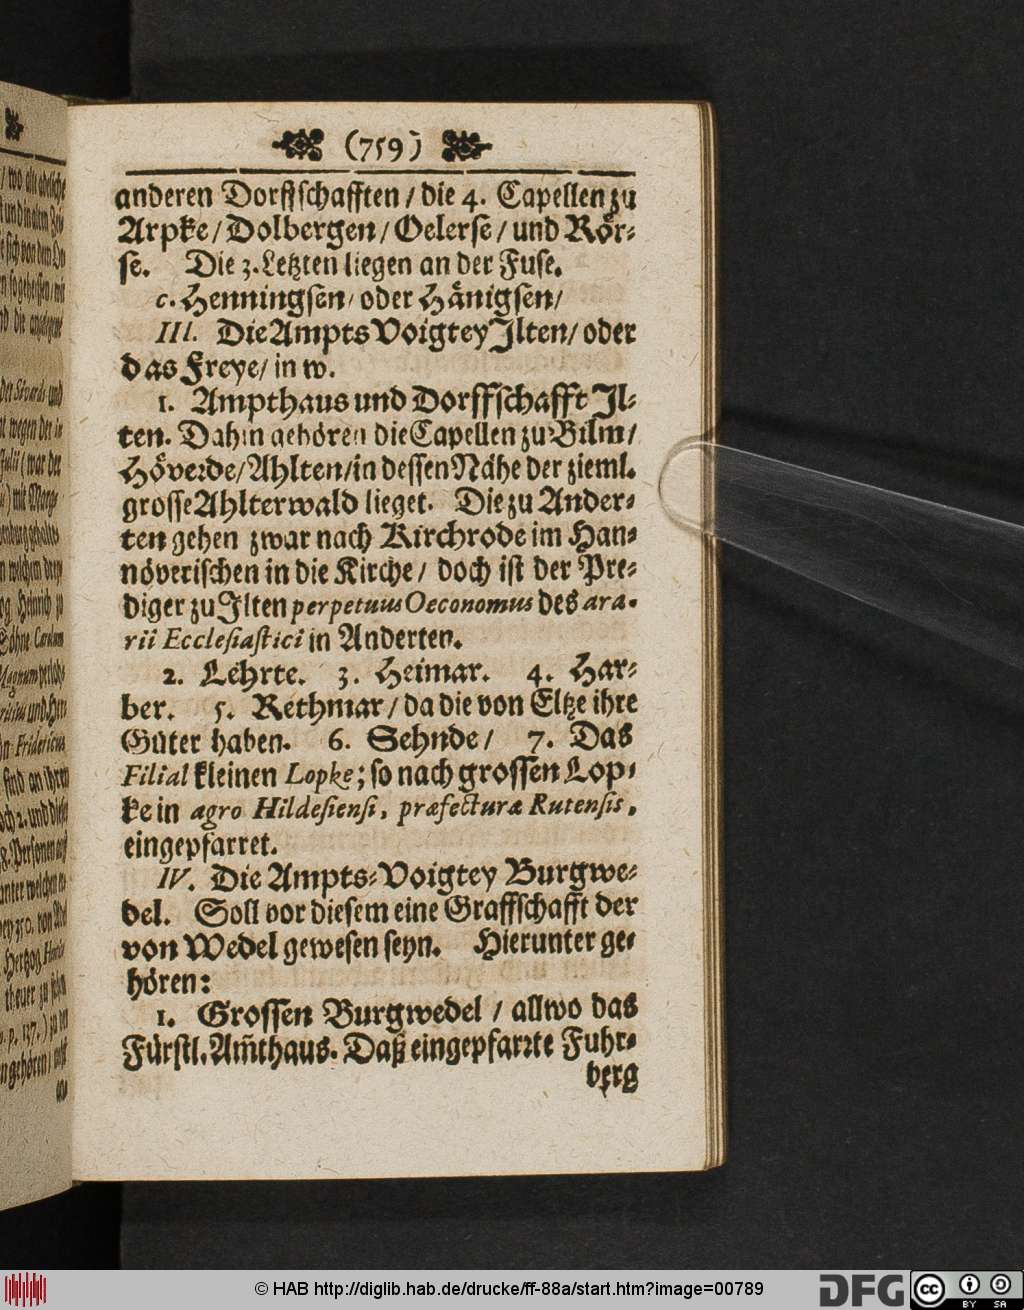 (759)
anderen Dorffschafften / die 4. Capellen zu
Arpke / Dolbergen / Oelerse / und Rör-
se. Die 3. Letzten liegen an der Fuse.
c. Henningsen / oder Hänigsen /
III. Die Ampts Voigtey Ilten / oder
das Freye / in w.
1. Ampthaus und Dorffschafft Il-
ten. Dahin gehören die Capellen zu Bilm /
Höverde / Ahlten / in dessen Nähe der zieml.
grosse Ahlterwald lieget. Die zu Ander-
ten gehen zwar nach Kirchrode im Han-
növerischen in die Kirche / doch ist der Pre-
diger zu Ilten perpetuus Oeconomus des æra-
rii Ecclesiastici in Anderten.
2. Lehrte. 3. Heimar. 4. Har-
ber. 5. Rethmar / da die von Eltze ihre
Güter haben. 6. Sehnde / 7. Das
Filial kleinen Lopke; so nach grossen Lop-
ke in agro Hildesiensi, præfecturæ Rutensis,
eingepfarret.
IV. Die Ampts-Voigtey Burgwe-
del. Soll vor diesem eine Graffschafft der
von Wedel gewesen seyn. Hierunter ge-
hören:
1. Grossen Burgwedel / allwo das
Fürstl. Am̃thaus. Daß eingepfarrte Fuhr-
berg
© HAB http://diglib.hab.de/drucke/ff-88a/start.htm?image=00789
DFG
cc BY SA